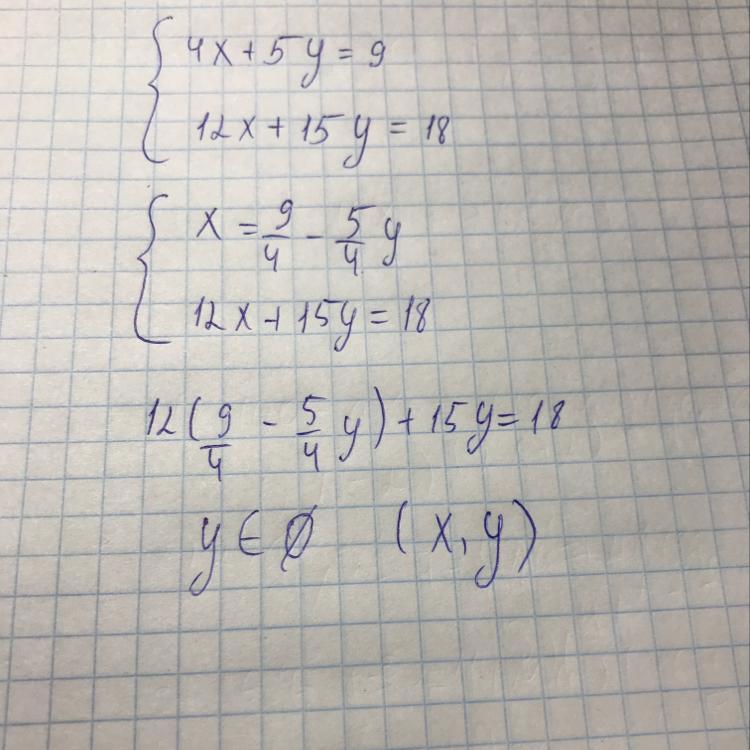 4x + 5y = 9
12x + 15y = 18
x = 9/4 - 5/4 y
12x + 15y = 18
12(9/4 - 5/4 y) + 15y = 18
y ∈ ∅ (x, y)